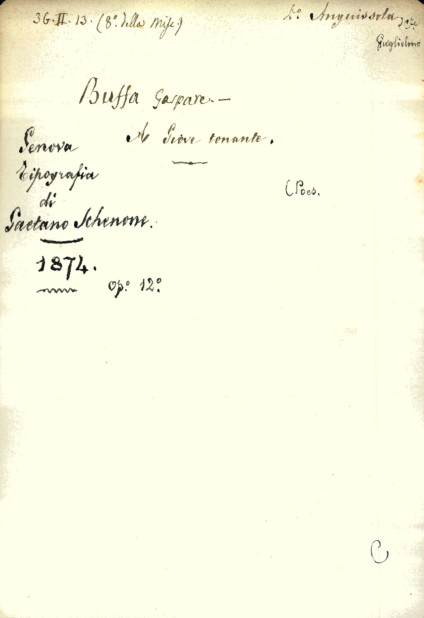 36.II.13. (8º della Misc.)
Lº Anguissola
Guglielmo
Buffa Gaspare.—
A Giove tonante.
Genova
Tipografia
di
Gaetano Schenone.
(Poes.
1874.
Op.º 12º
C